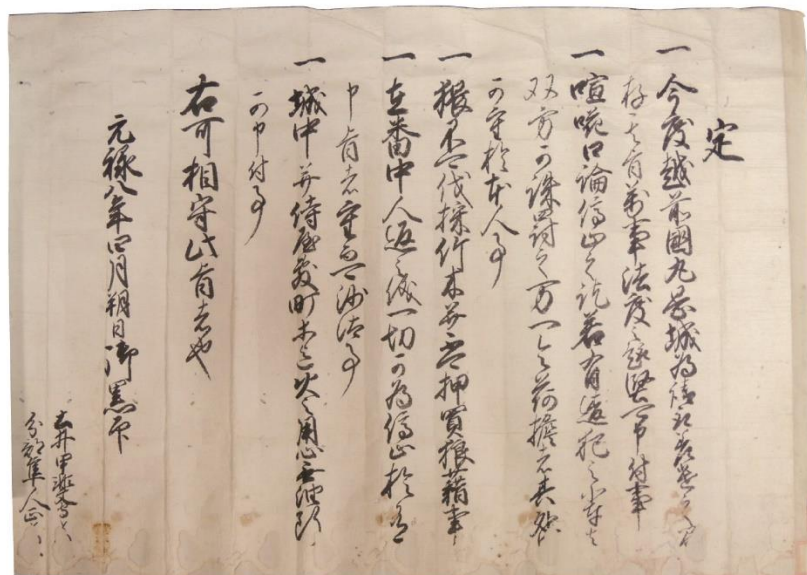 定
一 今度越前國丸岡城為請取差遣
有萬事法度之趣堅可申付事
一 喧嘩口論停止之訖若有違犯之輩者
双方可誅罸之万一令荷擔者其咎
可重於本人事
一 猥不可伐採竹木并不可押買狼藉事
一 在番中人返之儀一切可為停止於有
申旨者重而可沙汰事
一 城中并侍屋敷町等迄火之用心無油断
可申付事
右可相守此旨者也
元禄八年四月朔日御黒印
甲斐守
分部隼人正